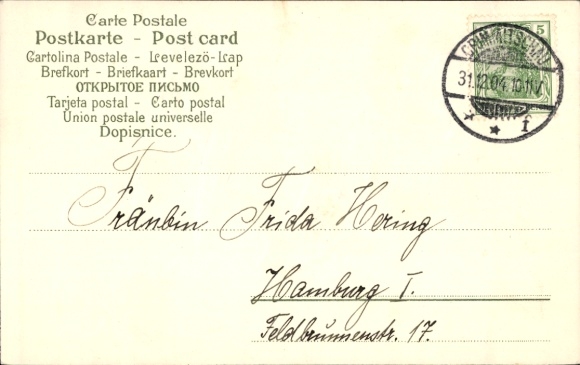 Carte Postale
Postkarte - Post card
Cartolina Postale - Levelezö-Lap
Brefkort - Briefkaart - Brevkort
ОТКРЫТОЕ ПИСЬМО
Tarjeta postal - Carto postal
Union postale universelle
Dopisnice.
5
CRIMMITSCHAU
31.12.04.10-11V.
* * f
Fräulein Frida Hering
Hamburg I.
Feldbrunnenstr. 17.